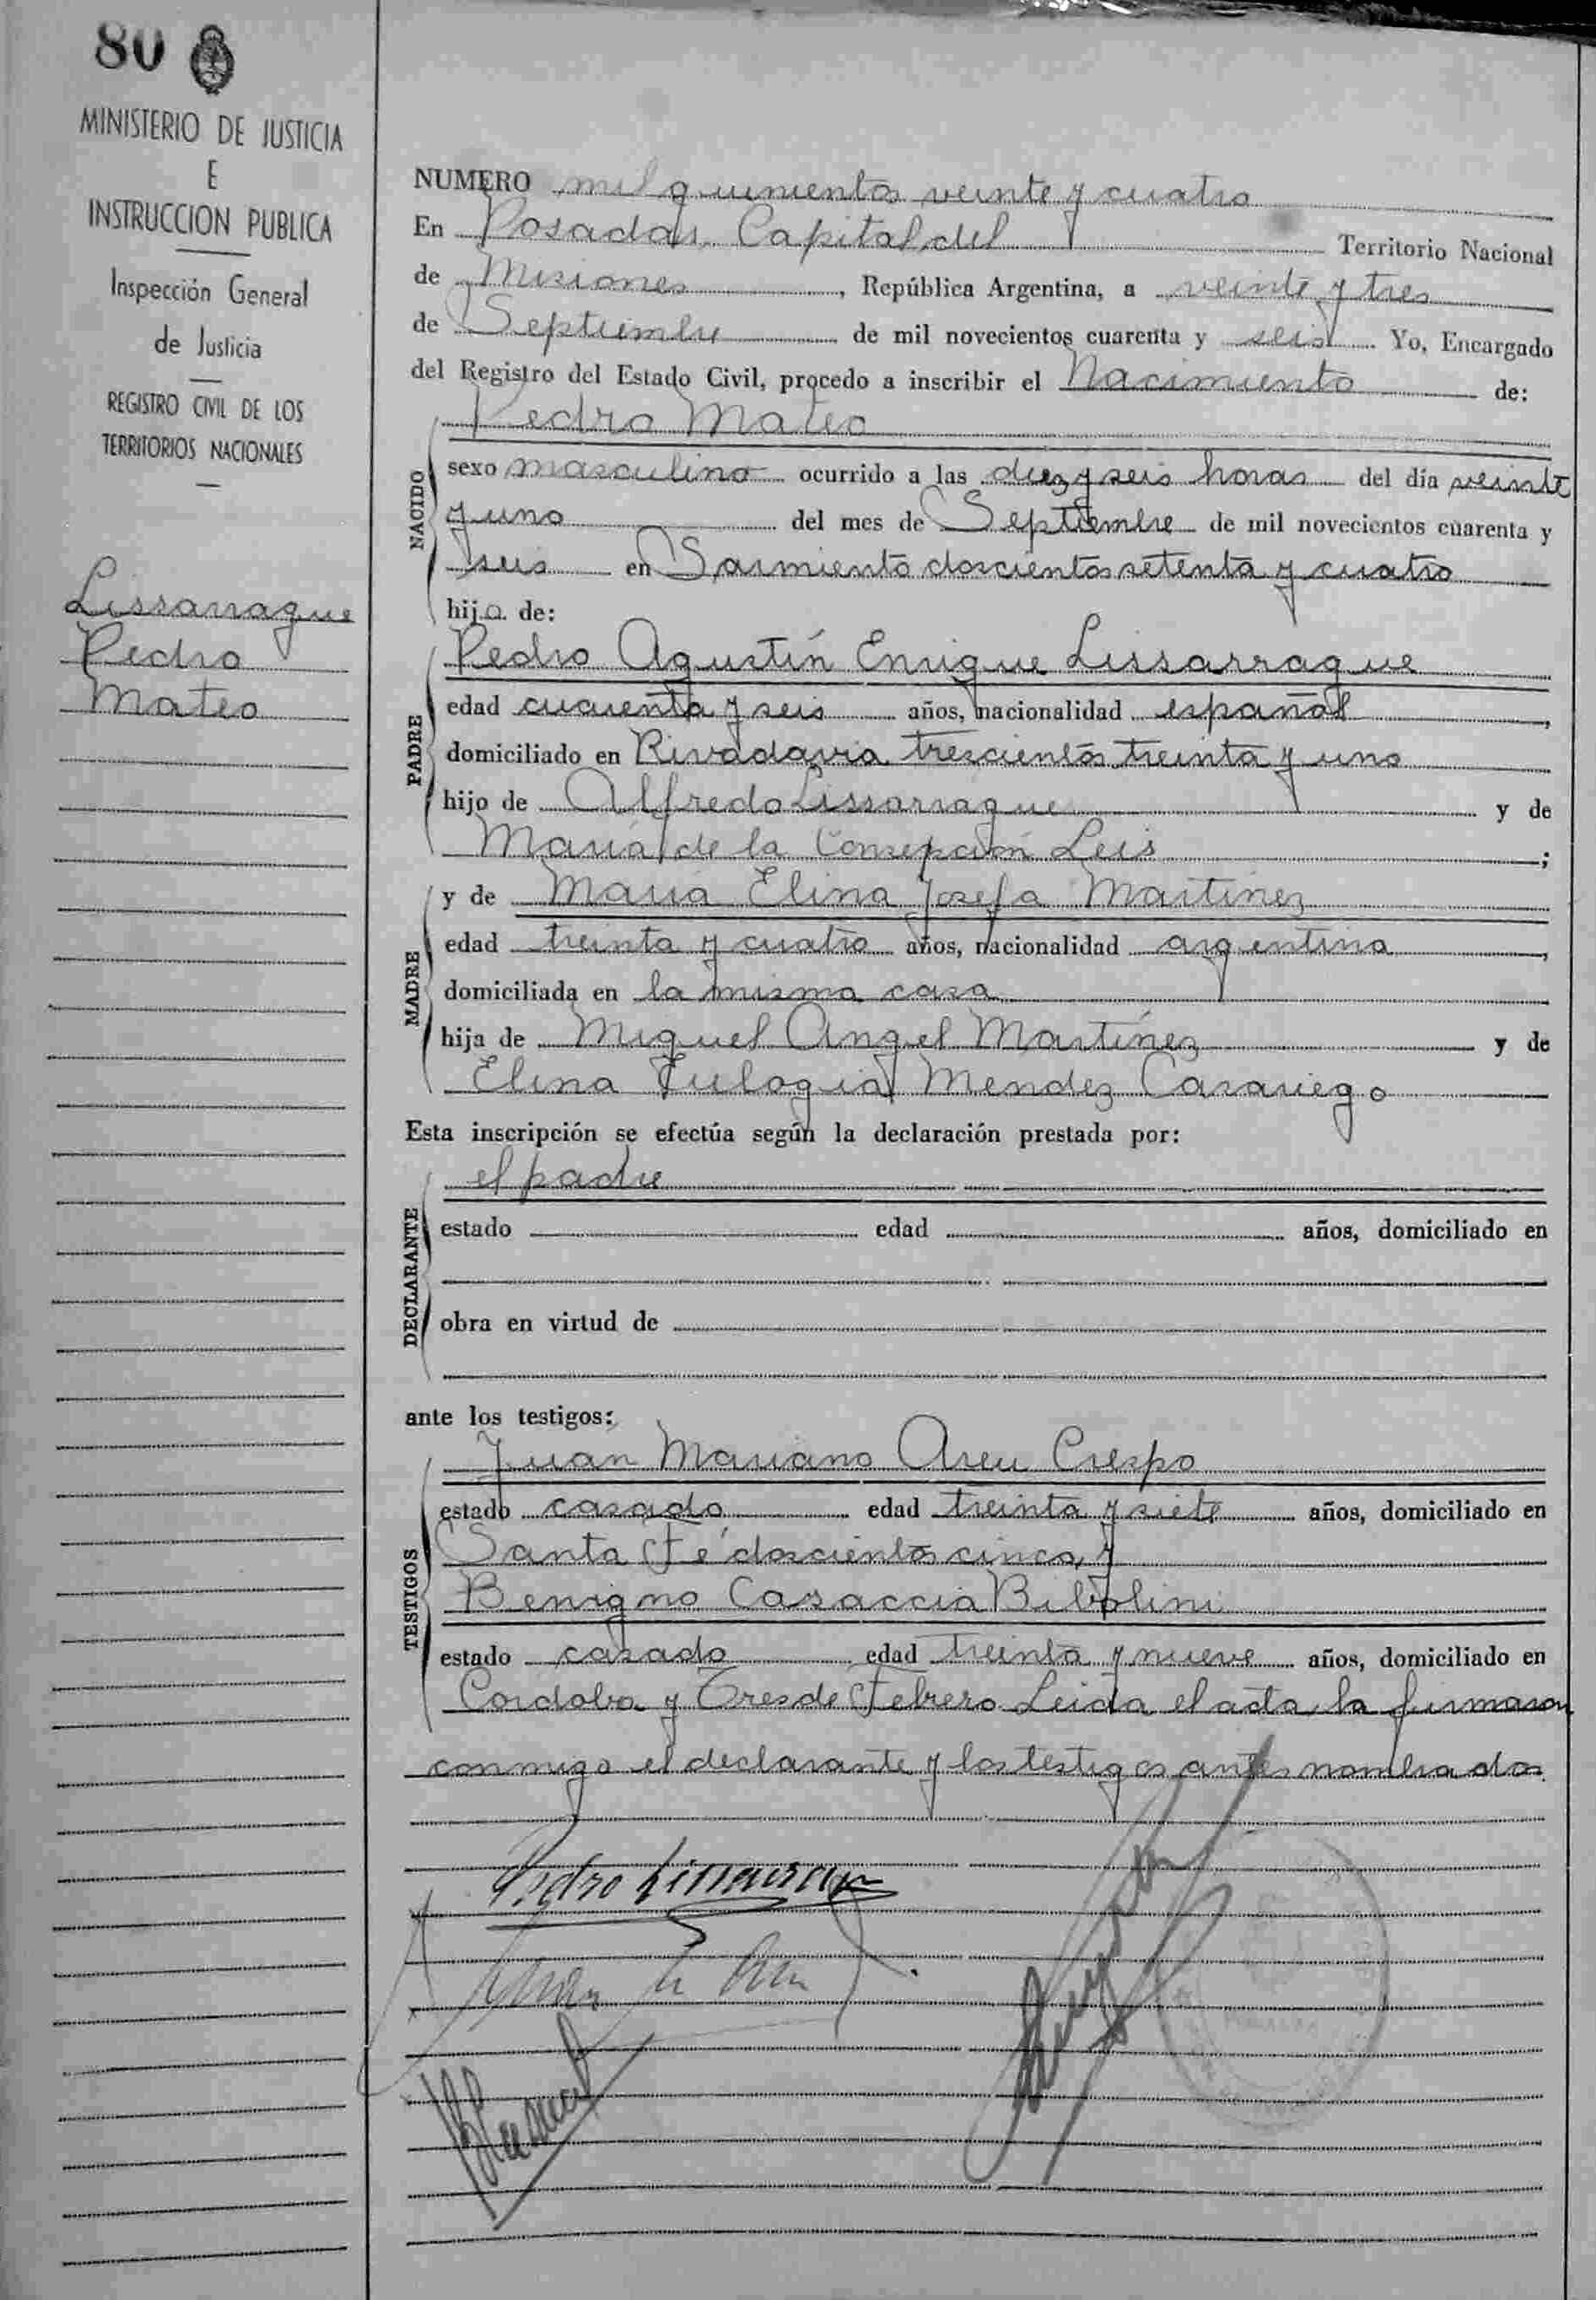 80
MINISTERIO DE JUSTICIA
E
INSTRUCCION PUBLICA
Inspección General
de Justicia
REGISTRO CIVIL DE LOS
TERRITORIOS NACIONALES
Lissarrague
Pedro
Mateo
NUMERO mil quinientos veinte y cuatro
En Posadas, Capital del Territorio Nacional
de Misiones, República Argentina, a veinte y tres
de Septiembre de mil novecientos cuarenta y seis. Yo, Encargado
del Registro del Estado Civil, procedo a inscribir el Nacimiento de:
NACIDO
Pedro Mateo
sexo masculino ocurrido a las diez y seis horas del día veinte
y uno del mes de Septiembre de mil novecientos cuarenta y
seis en Sarmiento doscientos setenta y cuatro
hijo de:
PADRE
Pedro Agustín Enrique Lissarrague
edad cuarenta y seis años, nacionalidad español,
domiciliado en Rivadavia trescientos treinta y uno
hijo de Alfredo Lissarrague y de
María de la Consepción Leis;
MADRE
y de María Elina Josefa Martínez
edad treinta y cuatro años, nacionalidad argentina,
domiciliada en la misma casa
hija de Miguel Angel Martínez y de
Elina Eulogia Mendez Casariego
Esta inscripción se efectúa según la declaración prestada por:
DECLARANTE
el padre
estado edad años, domiciliado en
obra en virtud de
ante los testigos:
TESTIGOS
Juan Mariano Areu Crespo
estado casado, edad treinta y siete años, domiciliado en
Santa Fé doscientos cinco, y
Benigno Casaccia Bibolini
estado casado edad treinta y nueve años, domiciliado en
Cordoba y Tres de Febrero Leida el acta, la firmaron
conmigo el declarante y los testigos antes nombrados.
Pedro Lissarrague